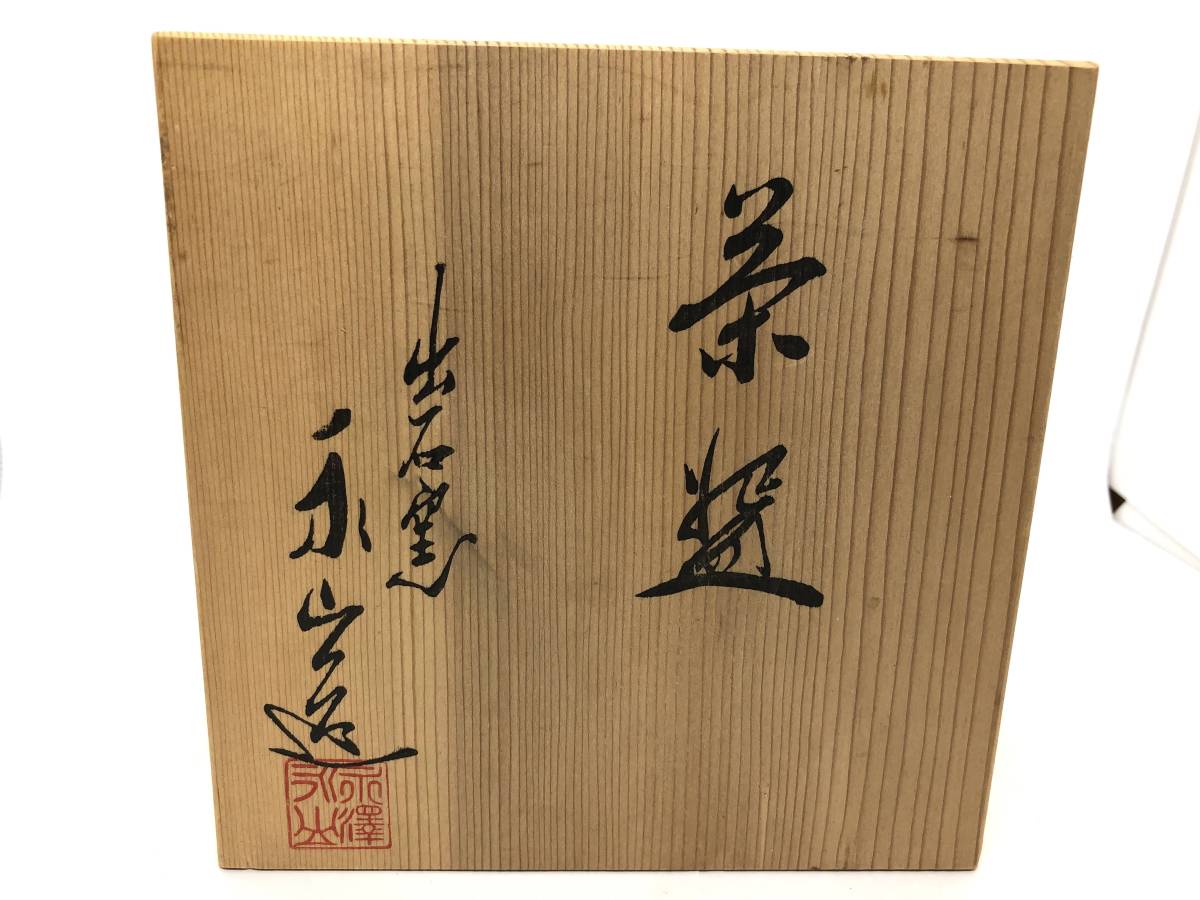 茶盌
出石窯
永山造
永澤
永山